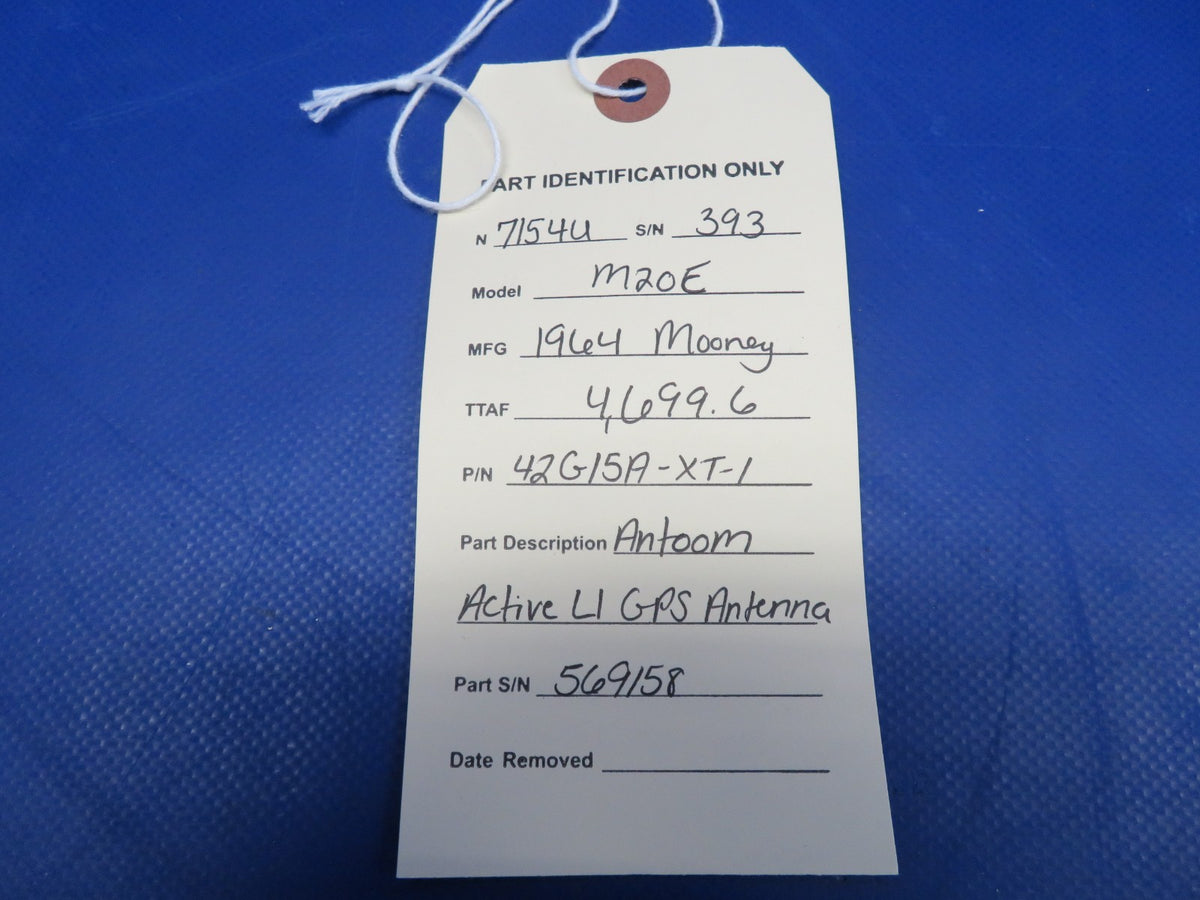 PART IDENTIFICATION ONLY
N 7154U S/N 393
Model M20E
MFG 1964 Mooney
TTAF 4,699.6
P/N 42G15A-XT-1
Part Description Antoom
Active L1 GPS Antenna
Part S/N 569158
Date Removed